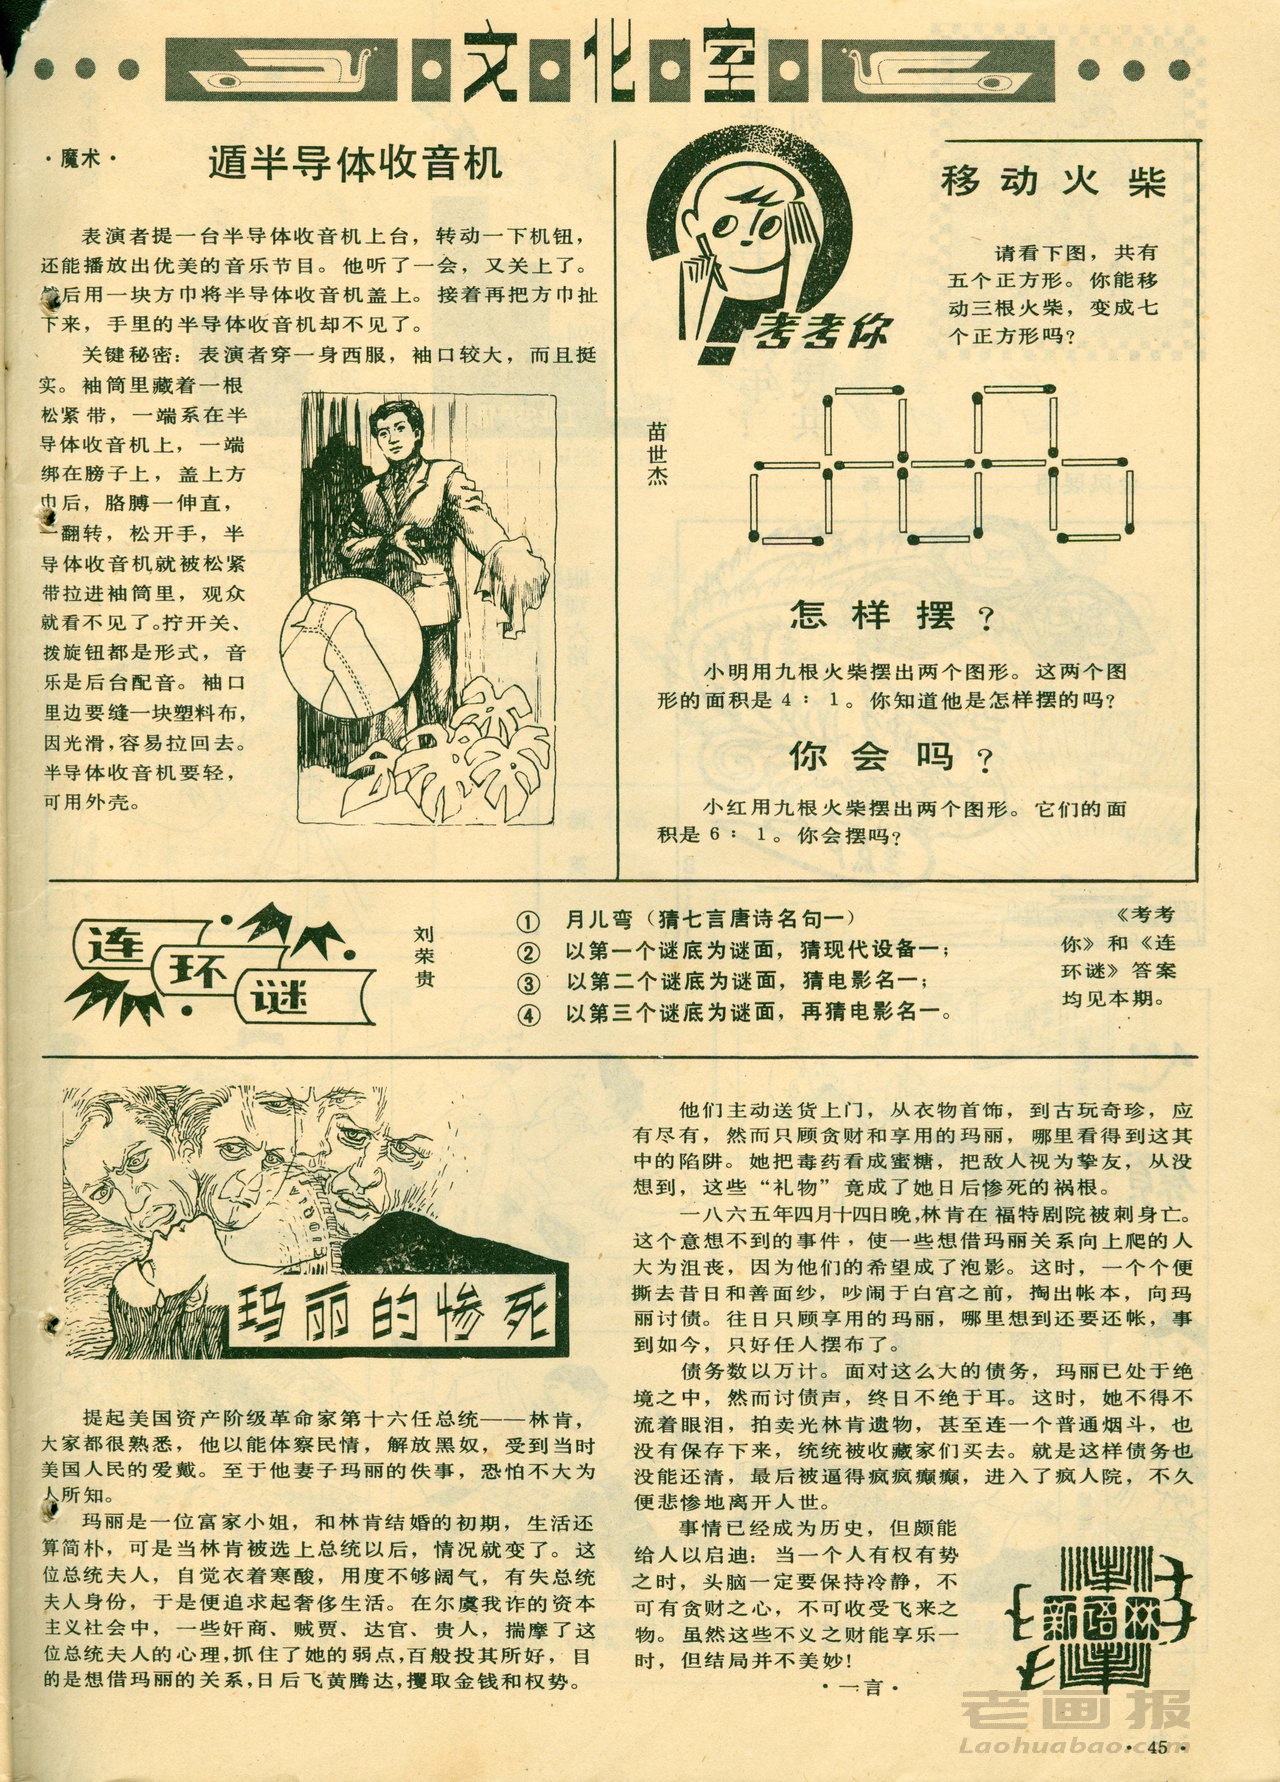 文化室
·魔术·
遁半导体收音机
表演者提一台半导体收音机上台，转动一下机钮，
还能播放出优美的音乐节目。他听了一会，又关上了。
后用一块方巾将半导体收音机盖上。接着再把方巾扯
下来，手里的半导体收音机却不见了。
关键秘密：表演者穿一身西服，袖口较大，而且挺
实。袖筒里藏着一根
松紧带，一端系在半
导体收音机上，一端
绑在膀子上，盖上方
巾后，胳膊一伸直，
一翻转，松开手，半
导体收音机就被松紧
带拉进袖筒里，观众
就看不见了。拧开关、
拨旋钮都是形式，音
乐是后台配音。袖口
里边要缝一块塑料布，
因光滑，容易拉回去。
半导体收音机要轻，
可用外壳。
考考你
苗世杰
移动火柴
请看下图，共有
五个正方形。你能移
动三根火柴，变成七
个正方形吗？
怎样摆？
小明用九根火柴摆出两个图形。这两个图
形的面积是4：1。你知道他是怎样摆的吗？
你会吗？
小红用九根火柴摆出两个图形。它们的面
积是6：1。你会摆吗？
连环谜
刘荣贵
① 月儿弯（猜七言唐诗名句一）
② 以第一个谜底为谜面，猜现代设备一；
③ 以第二个谜底为谜面，猜电影名一；
④ 以第三个谜底为谜面，再猜电影名一。
《考考
你》和《连
环谜》答案
均见本期。
玛丽的惨死
提起美国资产阶级革命家第十六任总统——林肯，
大家都很熟悉，他以能体察民情，解放黑奴，受到当时
美国人民的爱戴。至于他妻子玛丽的佚事，恐怕不大为
人所知。
玛丽是一位富家小姐，和林肯结婚的初期，生活还
算简朴，可是当林肯被选上总统以后，情况就变了。这
位总统夫人，自觉衣着寒酸，用度不够阔气，有失总统
夫人身份，于是便追求起奢侈生活。在尔虞我诈的资本
主义社会中，一些奸商、贼贾、达官、贵人，揣摩了这
位总统夫人的心理，抓住了她的弱点，百般投其所好，目
的是想借玛丽的关系，日后飞黄腾达，攫取金钱和权势。
他们主动送货上门，从衣物首饰，到古玩奇珍，应
有尽有，然而只顾贪财和享用的玛丽，哪里看得到这其
中的陷阱。她把毒药看成蜜糖，把敌人视为挚友，从没
想到，这些“礼物”竟成了她日后惨死的祸根。
一八六五年四月十四日晚，林肯在福特剧院被刺身亡。
这个意想不到的事件，使一些想借玛丽关系向上爬的人
大为沮丧，因为他们的希望成了泡影。这时，一个个便
撕去昔日和善面纱，吵闹于白宫之前，掏出帐本，向玛
丽讨债。往日只顾享用的玛丽，哪里想到还要还帐，事
到如今，只好任人摆布了。
债务数以万计。面对这么大的债务，玛丽已处于绝
境之中，然而讨债声，终日不绝于耳。这时，她不得不
流着眼泪，拍卖光林肯遗物，甚至连一个普通烟斗，也
没有保存下来，统统被收藏家们买去。就是这样债务也
没能还清，最后被逼得疯疯癫癫，进入了疯人院，不久
便悲惨地离开人世。
事情已经成为历史，但颇能
给人以启迪：当一个人有权有势
之时，头脑一定要保持冷静，不
可有贪财之心，不可收受飞来之
物。虽然这些不义之财能享乐一
时，但结局并不美妙！
·一言·
老画报
Laohuabao.com
·45·